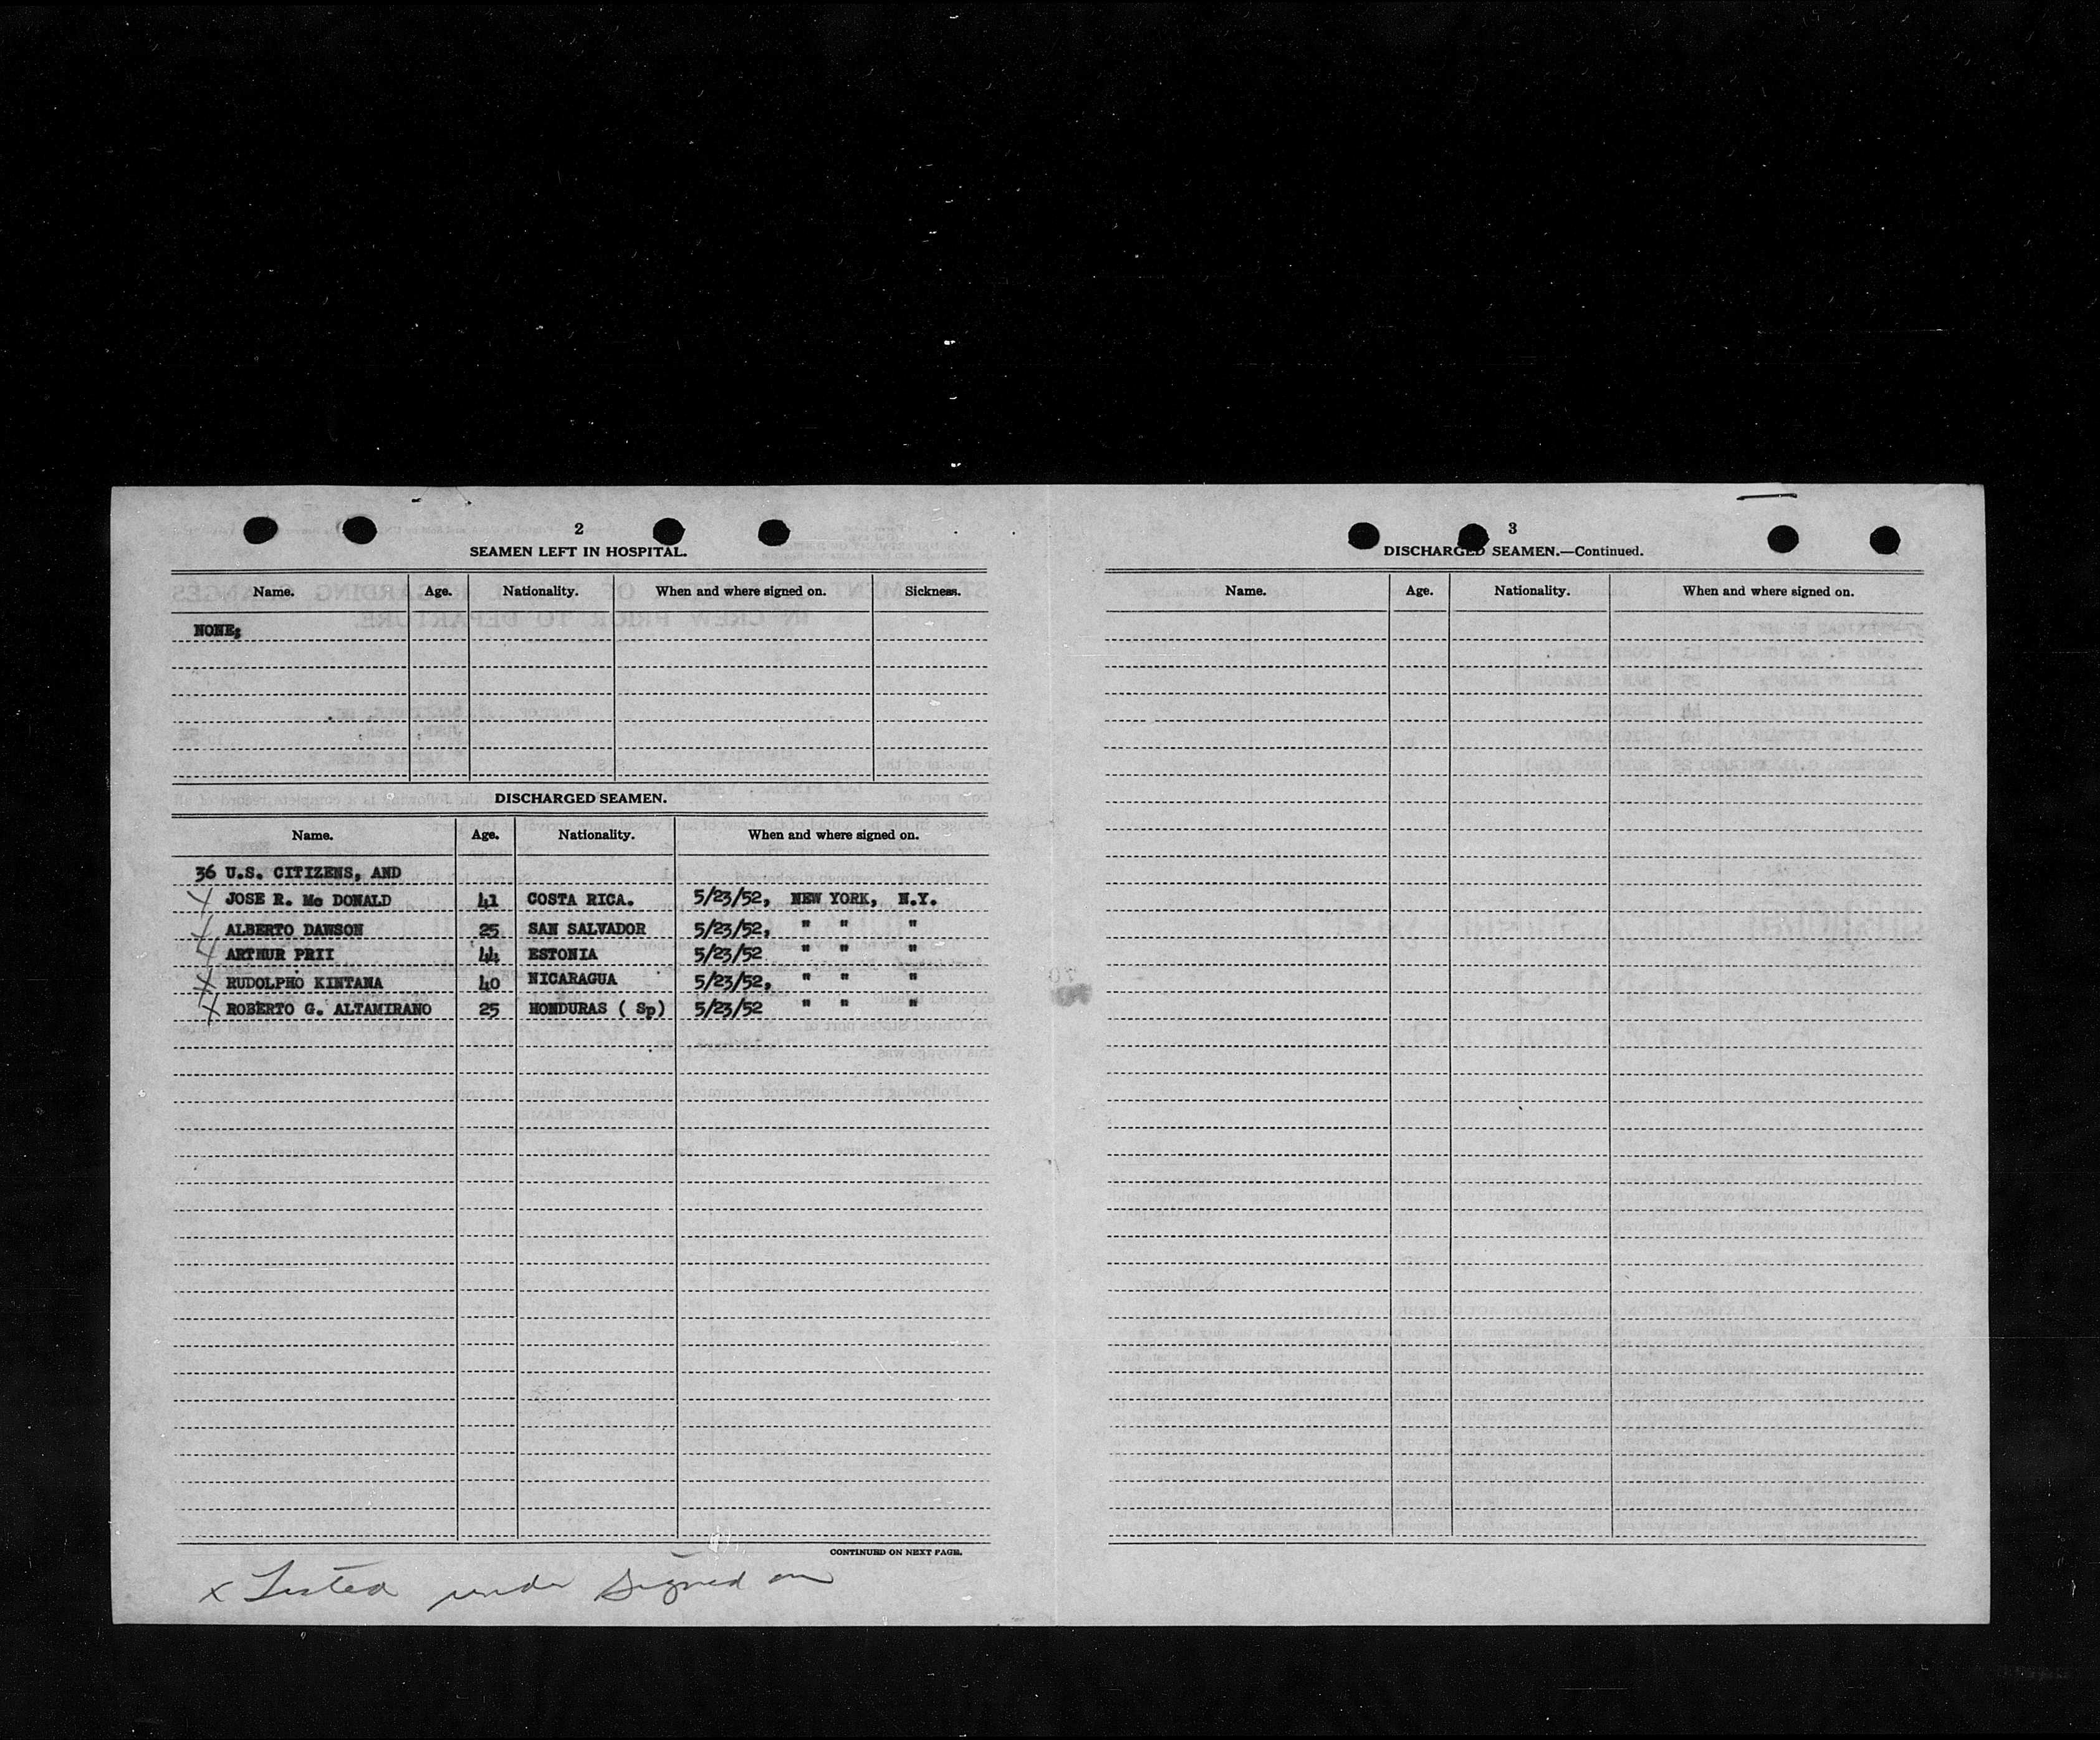 2
SEAMEN LEFT IN HOSPITAL.
Name. Age. Nationality. When and where signed on. Sickness.
NONE;
DISCHARGED SEAMEN.
Name. Age. Nationality. When and where signed on.
36 U.S. CITIZENS, AND
JOSE R. Mc DONALD 41 COSTA RICA. 5/23/52, NEW YORK, N.Y.
ALBERTO DAWSON 25 SAN SALVADOR 5/23/52, " " "
ARTHUR PRII 44 ESTONIA 5/23/52 " " "
X RUDOLPHO KINTANA 40 NICARAGUA 5/23/52, " " "
X ROBERTO G. ALTAMIRANO 25 HONDURAS ( Sp) 5/23/52 " " "
CONTINUED ON NEXT PAGE.
x Listed under signed on
3
DISCHARGED SEAMEN.—Continued.
Name. Age. Nationality. When and where signed on.